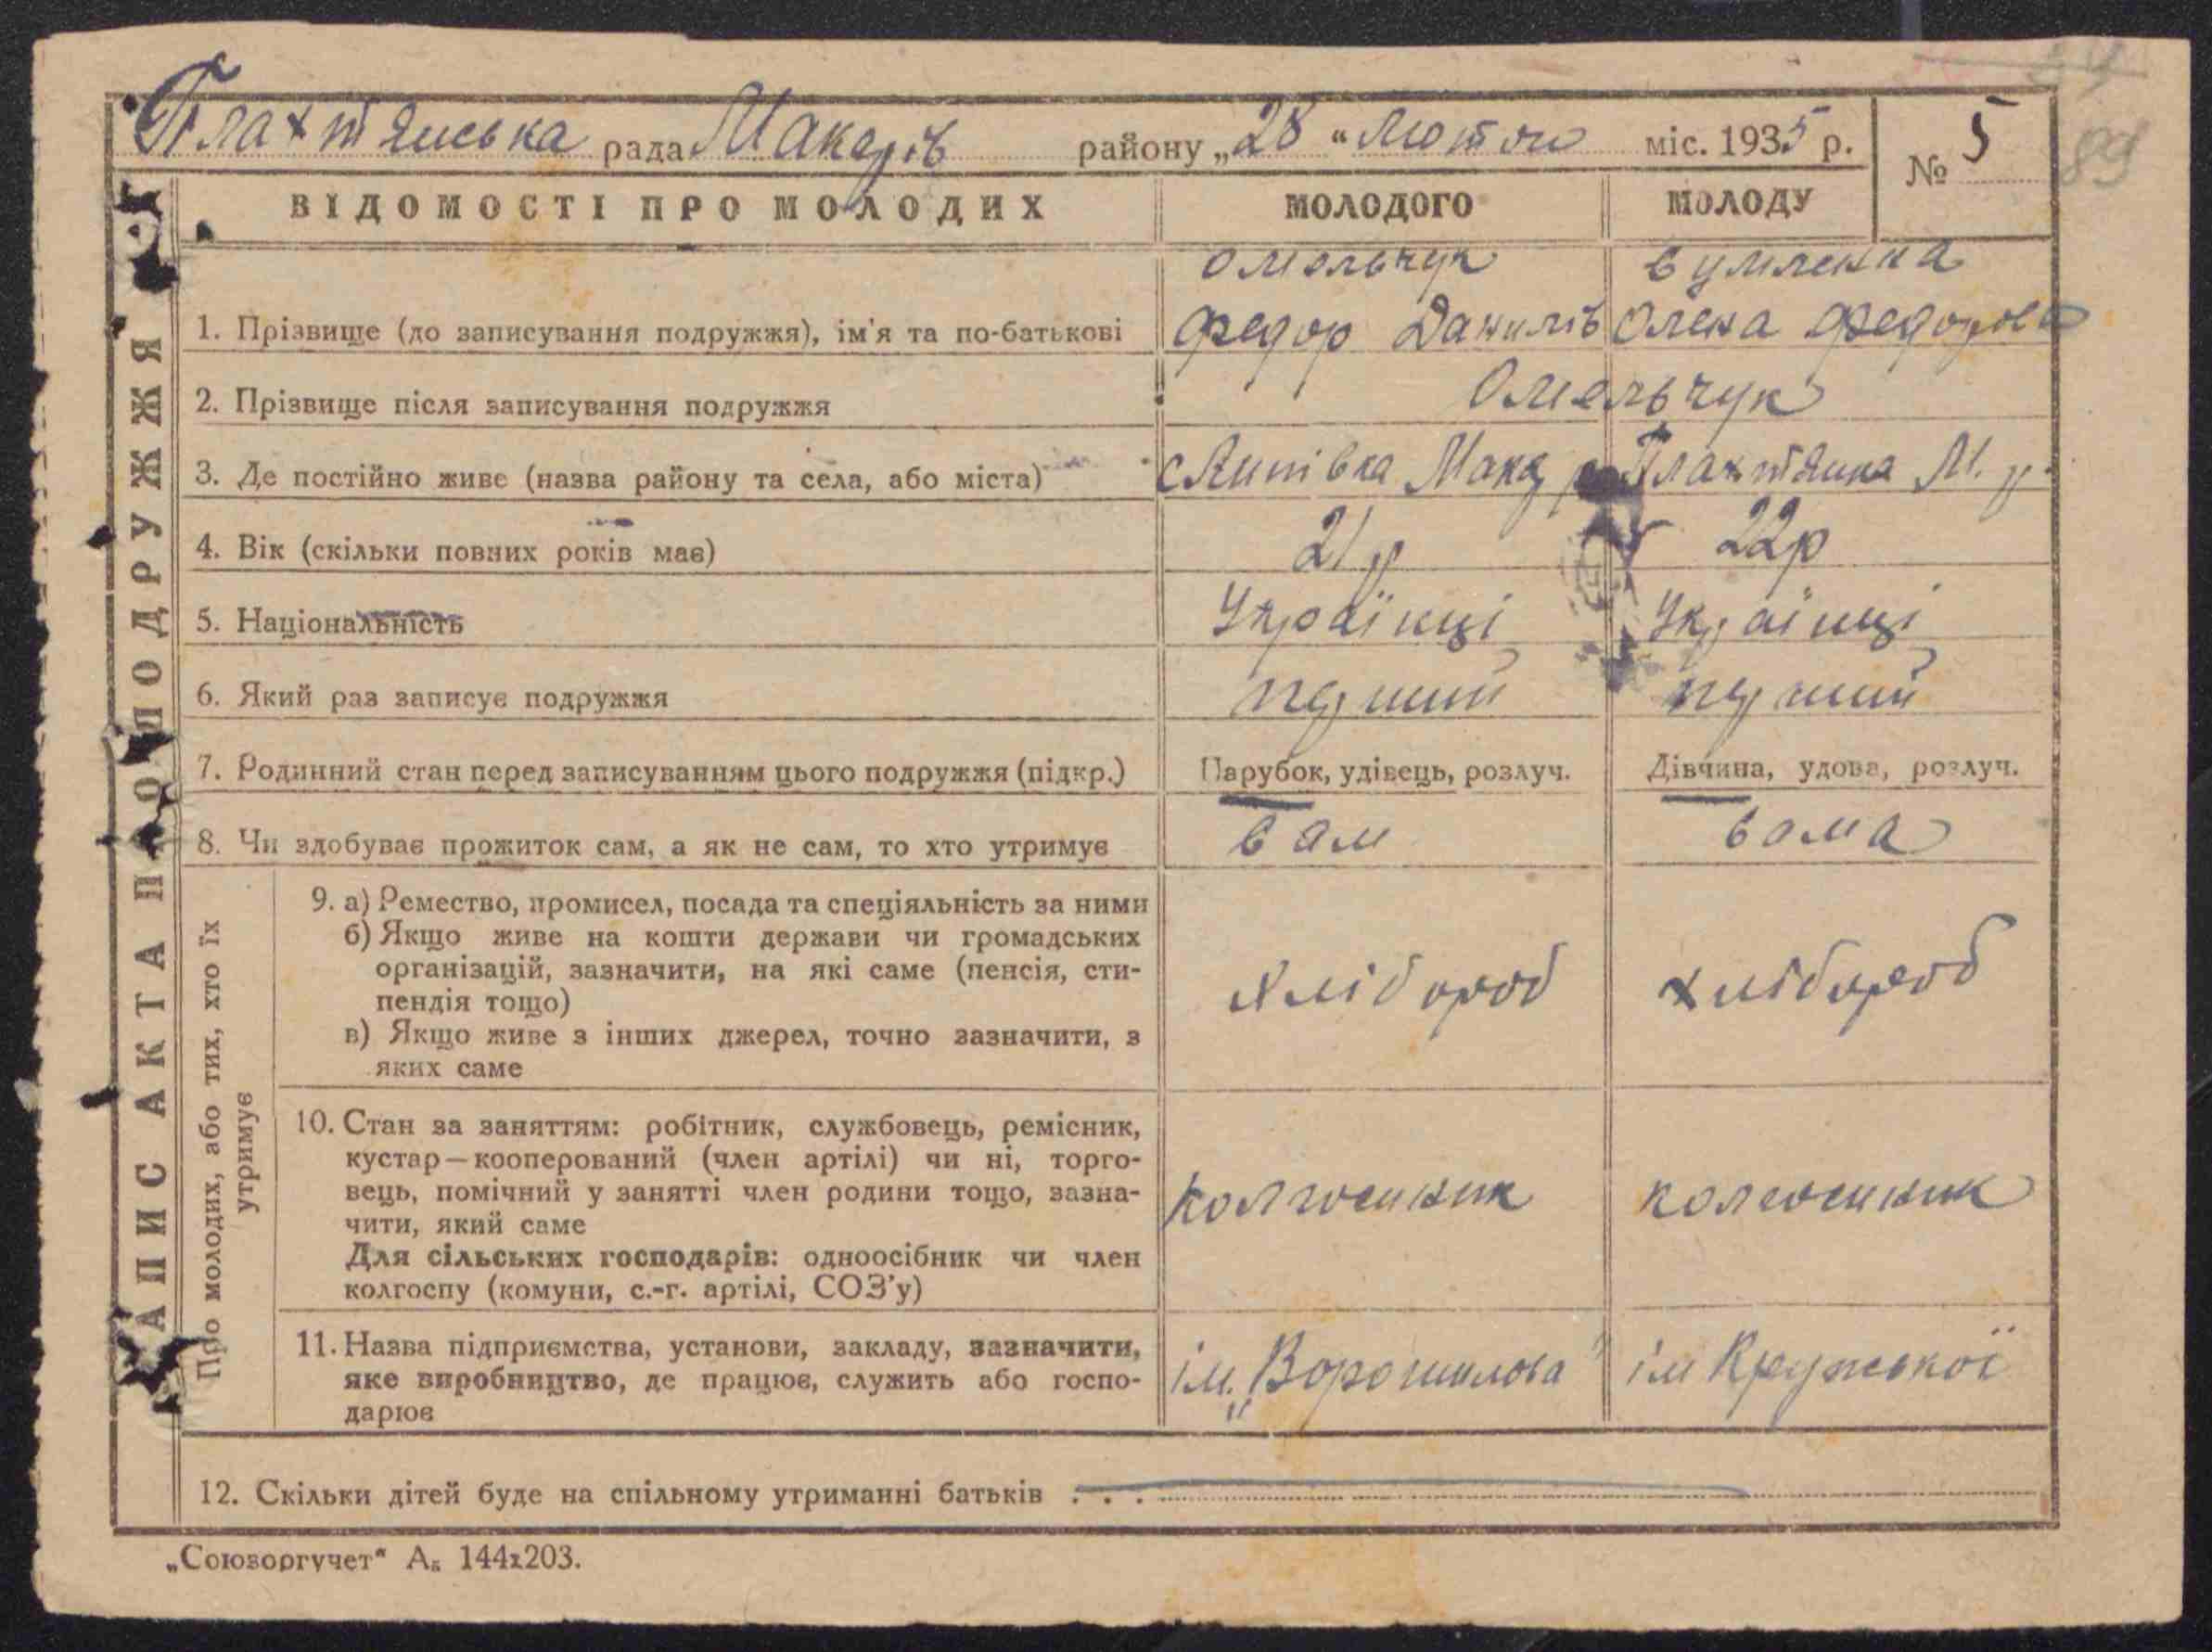 Плахтянська рада Макарів району „28“ Лютого міс. 1935 р.
№ 5
89
ЗАПИС АКТА ПРО ПОДРУЖЖЯ
ВІДОМОСТІ ПРО МОЛОДИХ МОЛОДОГО МОЛОДУ
Омельчук
1. Прізвище (до записування подружжя), ім'я та по-батькові Федор Данилів Олена Федорова
2. Прізвище після записування подружжя Омельчук
3. Де постійно живе (назва району та села, або міста) с Липівка Макар р Плахтянка М. р.
4. Вік (скільки повних років має) 21 р 22 р
5. Національність Українці Українці
6. Який раз записує подружжя перший перший
7. Родинний стан перед записуванням цього подружжя (підкр.) Парубок, удівець, розлуч. Дівчина, удова, розлуч.
8. Чи здобуває прожиток сам, а як не сам, то хто утримує сам сама
Про молодих, або тих, хто їх
утримує
9. а) Ремество, промисел, посада та спеціяльність за ними
б) Якщо живе на кошти держави чи громадських
організацій, зазначити, на які саме (пенсія, сти-
пендія тощо)
в) Якщо живе з інших джерел, точно зазначити, з
яких саме
хлібороб хлібороб
10. Стан за заняттям: робітник, службовець, ремісник,
кустар—кооперований (член артілі) чи ні, торго-
вець, помічний у занятті член родини тощо, зазна-
чити, який саме
Для сільських господарів: одноосібник чи член
колгоспу (комуни, с.-г. артілі, СОЗ'у)
колгоспник колгоспник
11. Назва підприємства, установи, закладу, зазначити,
яке виробництво, де працює, служить або госпо-
дарює
ім. „Ворошилова" ім Крупської
12. Скільки дітей буде на спільному утриманні батьків . . .
„Союзоргучет" А₅ 144х203.